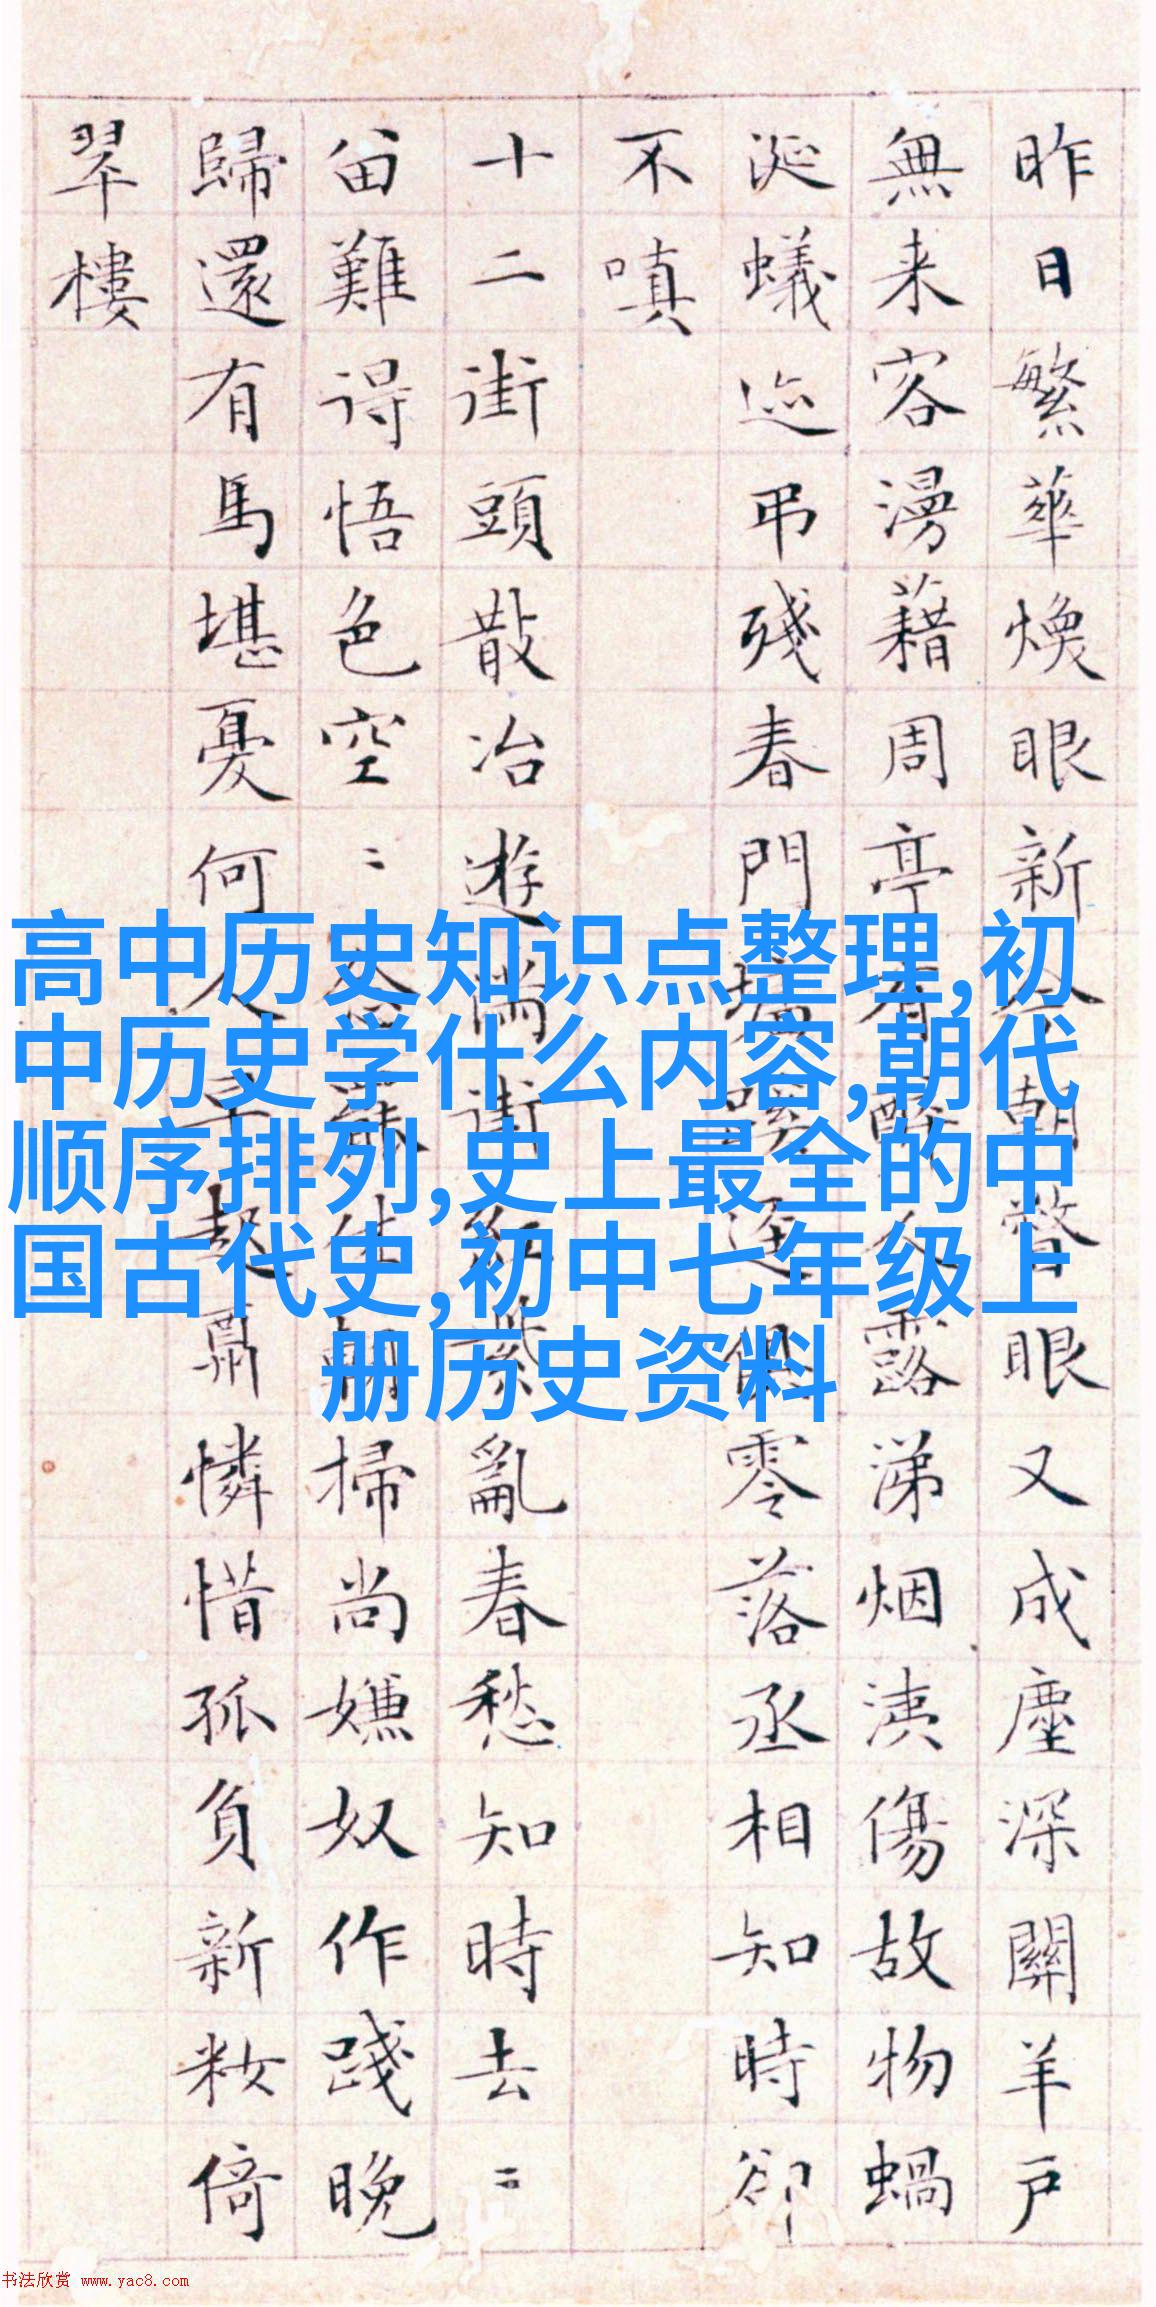 昨日繁華煥眼新今朝瞥眼又成塵深關羊戶
無来客漫藉周亭有醉人露涕烟洟傷故物蝸
涎蟻迹弔殘春門墻蹊逕俱零落丞相知時卻
不嗔
十二街頭散冶遊滿街紅紫亂春愁知時去〻
留難得悟色空〻念罷休朝掃尚嫌奴作踐晚
歸還有馬堪憂何人早起憐惜孤負新籹倚
翠樓
高中历史知识点整理,初
中历史学什么内容,朝代
顺序排列,史上最全的中
国古代史,初中七年级上
册历史资料
书法欣赏 www.yac8.com